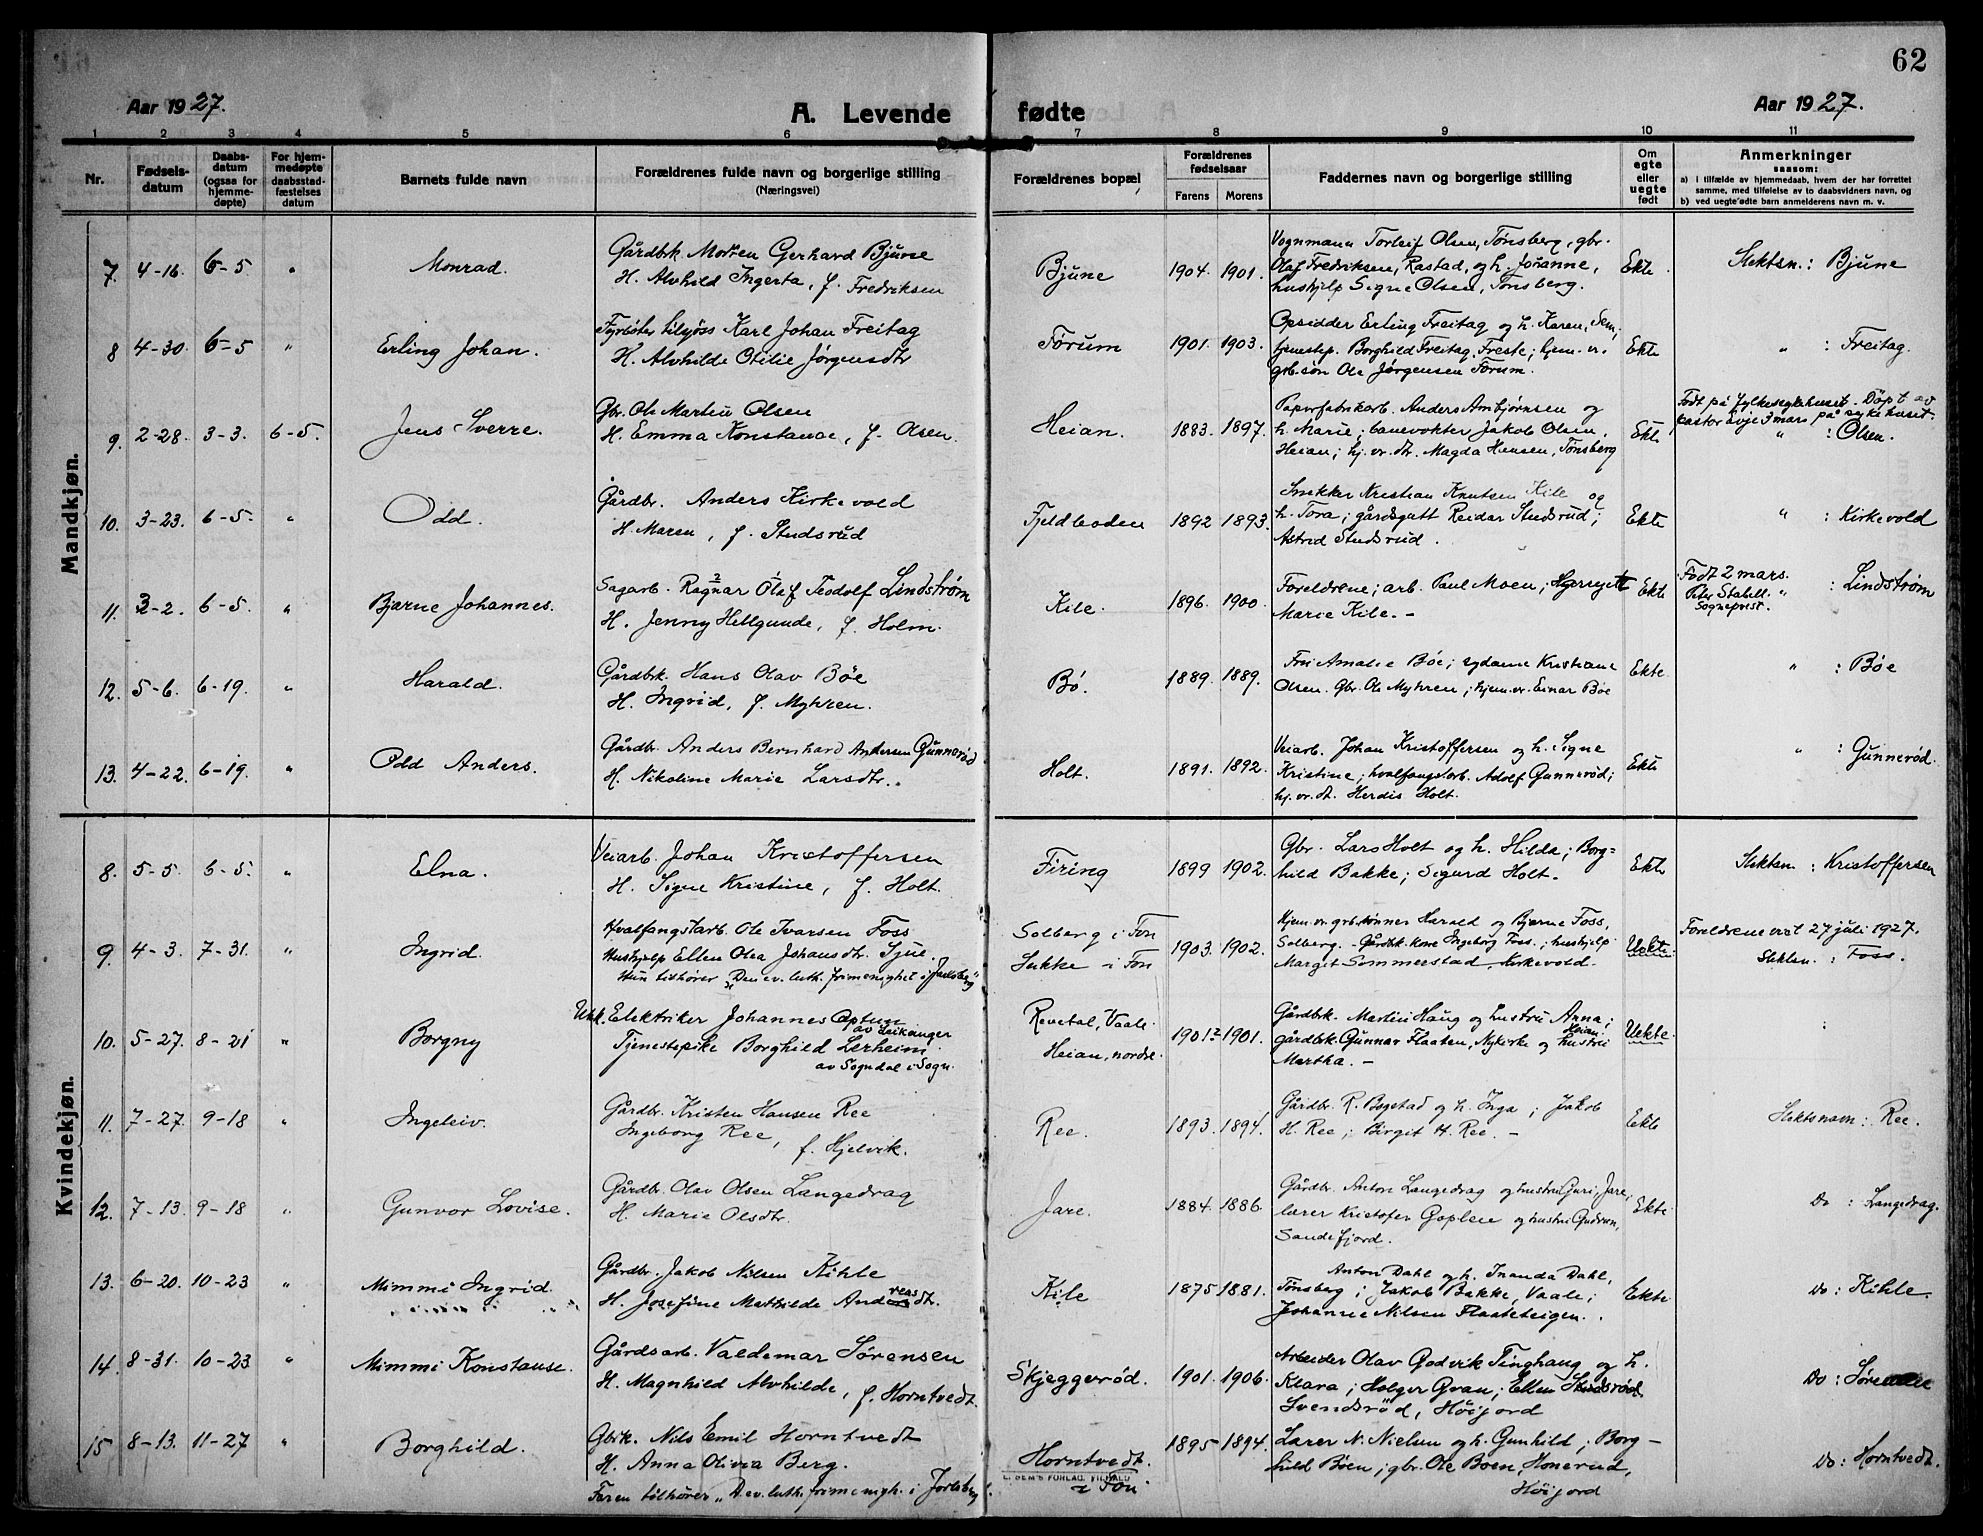 62
Aar 1927. A. Levende fødte Aar 1927.
1 2 3 4 5 6 7 8 9 10 11
Nr. Fødsels-datum Daabs-datum (ogsaa for hjemme-døpte) For hjem-medøpte daabsstad-fæstelses datum Barnets fulde navn Forældrenes fulde navn og borgerlige stilling (Næringsvei) Forældrenes bopæl Forældrenes fødselsaar Farens Morens Faddernes navn og borgerlige stilling Om egte eller uegte født Anmerkninger saasom:
a) i tilfælde av hjemmedaab, hvem der har forrettet samme, med tilføielse av to daabsvidners navn, og
b) ved uegte fødte barn anmelderens navn m. v.
Mandkjøn.
7. 4-16. 6-5 " Monrad. Gårdbk. Morten Gerhard Bjune
H. Alvhild Ingerta, f. Fredriksen
Bjune 1904. 1901.
Vognmann Torleif Olsen, Tønsberg, gbr.
Olaf Fredriksen, Rastad, og h. Johanne,
hushjelp Signe Olsen, Tønsberg.
Ekte Slektsn.: Bjune
8 4-30. 6-5 " Erling Johan. Fyrbøter tilsjøss Karl Johan Freitag
H. Alvhilde Otilie Jørgensdtr
Førum 1901. 1903.
Opsidder Erling Freitag og h. Karen, Sem;
tjenestep. Borghild Freitag, Freste; hjem. v.
grb.søn Ole Jørgensen Førum.
Ekte " : Freitag.
9. 2-28. 3-3. 6-5. Jens Sverre. Gbr. Ole Martin Olsen
H. Emma Konstanse, f. Olsen.
Heian. 1883. 1897.
Papirfabrikarb. Anders Ambjørnsen og
h. Marie; banevokter Jakob Olsen,
Heian; hj. v. dt. Magda Hansen, Tønsberg
Ekte Født på Fylkessykehuset. Døpt av
pastor Evje 3 mars på sykehuset.
" : Olsen.
10. 3-23. 6-5. " Odd. Gårdbr. Anders Kirkevold
H. Maren, f. Studsrud
Fjeldboden 1892 1893.
Snekker Kristian Knutsen Kile og
h. Tora; gårdsgutt Reidar Studsrud;
Astrid Studsrud.
Ekte " : Kirkevold
11. 3-2. 6-5. " Bjarne Johannes. Sagarb. Ragnar Olaf Teodolf Lindstrøm
H. Jenny Hellgunde, f. Holm.
Kile. 1896. 1900.
Foreldrene; arb. Paul Moen,
Marie Kile. -
Ekte Født 2 mars. : Lindstrøm
Peter Stabell "
Sogneprest.
12. 5-6. 6-19. " Harald. Gårdbk. Hans Olav Bøe
H. Ingrid, f. Myhren.
Bø. 1889. 1889.
Fru Amalie Bøe; sydame Kristiane
Olsen. Gbr. Ole Myhren; hjem. v. Einar Bøe
Ekte " : Bøe
13. 4-22. 6-19. " Odd Anders. Gårdbr. Anders Bernhard Andersen Gunnerød
H. Nikoline Marie Larsdtr.
Holt. 1891. 1892.
Veiarb. Johan Kristoffersen og h. Signe
Kristine; hvalfangstarb. Adolf Gunnerød;
hj. v. dt. Herdis Holt.
Ekte " : Gunnerød.
Kvindekjøn.
8. 5-5. 6-5. " Elna. Veiarb. Johan Kristoffersen
H. Signe Kristine, f. Holt.
Firing 1899 1902.
Gbr. Lars Holt og h. Hilda; Borg=
hild Bakke; Sigurd Holt.
Ekte Slektsn : Kristoffersen
9. 4-3. 7-31. " Ingrid. Hvalfangstarb. Ole Ivarsen Foss
Hushjelp Ellen Olea Johansdtr.
Hun tilhører "Den ev. luth. frimenighet i Jarlsberg"
Solberg i Fon
Sukke - i Fon
1903. 1902.
Hjem. v. grb.sønner Harald og Bjarne Foss,
Solberg. - Gårdbk. kone Ingeborg Foss; hushjelp
Margit Sommerstad, Kirkevold.
Uekte. Foreldrene viet 27 juli 1927.
Slektsn. : Foss.
10. 5-27. 8-21 " Borgny Elektriker Johannes Optun
av Leikanger
Tjenestepike Borghild Lerheim
av Sogndal i Sogn.
Revetal, Vaale.
Heian, nordre.
1901. 1901.
Gårdbk. Martin Haug og hustru Anna;
gårdbk. Gunnar Flaaten, Nykirke og hustru
Martha. -
Uekte. :
11. 7-27. 9-18 " Ingeleiv. Gårdbr. Kristen Hansen Ree
Ingeborg Ree, f. Hjelvik.
Ree. 1893. 1894.
Gårdbr. R. Bogstad og h. Inga; Jakob
H. Ree; Birgit H. Ree. -
Ekte Slektsnavn : Ree.
12. 7-13. 9-18 " Gunvor Lovise. Gårdbr. Olav Olsen Langedrag
H. Marie Olsdtr.
Jare. 1884. 1886.
Gårdbr. Anton Langedrag og hustru Guri, Jare,
lærer Kristofer Goplen og hustru Gudrun,
Sandefjord.
Ekte Do : Langedrag.
13. 6-20. 10-23 " Mimmi Ingrid. Gårdbr. Jakob Nilsen Kihle
H. Josefine Mathilde Andreasdt.
Kile 1875 1881.
Anton Dahl og h. Inanda Dahl,
Tønsberg; Jakob Bakke, Vaale;
Johanne Nilsen Flaateteigen.
Ekte Do : Kihle.
14 8-31. 10-23 " Mimmi Konstanse. Gårdsarb. Valdemar Sørensen
H. Magnhild Alvhilde, f. Horntvedt.
Skjeggerød. 1901. 1906.
Arbeider Olav Godvik Tinghaug og h.
Klara; Holger Gran; Ellen
Svendsrød, Høijord
Do : Sørensen
15 8-13. 11-27 " Borghild. Gbrk. Nils Emil Horntvedt
H. Anna Olivia Berg.
Faren tilhører "D. ev. luth. frimenigh. i Jarlsberg".
Horntvedt.
i Fon
1895 1894.
Lærer N. Nielsen og h. Gunhild; Borg-
hild Bøen; gbr. Ole Boen, Honerud,
Høijord
Do : Horntvedt.